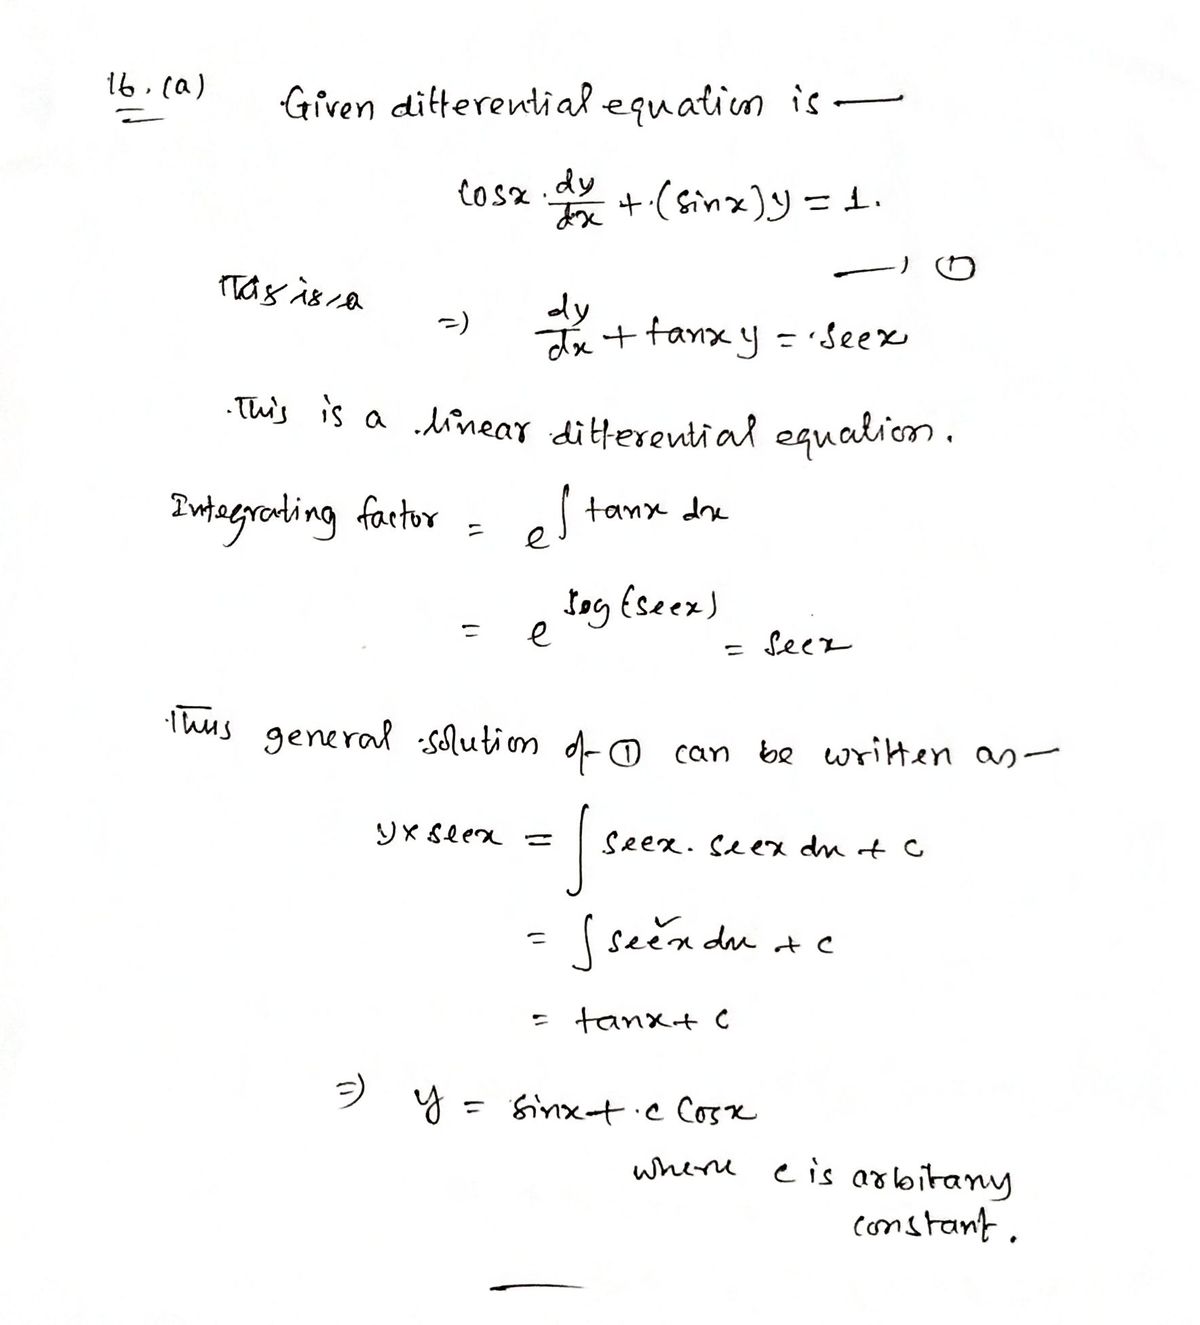 16. (a) Given differential equation is —
cosx . dy/dx + (sinx)y = 1.
—, ①
This is a
=) dy/dx + tanx y = secx
This is a linear differential equation.
Integrating factor = e^∫ tanx dx
= e^log(secx) = secx
Thus general solution of ① can be written as —
y x secx = ∫ secx. secx dx + c
= ∫ sec²x dx + c
= tanx + c
=) y = sinx + c cosx
where c is arbitany
constant.